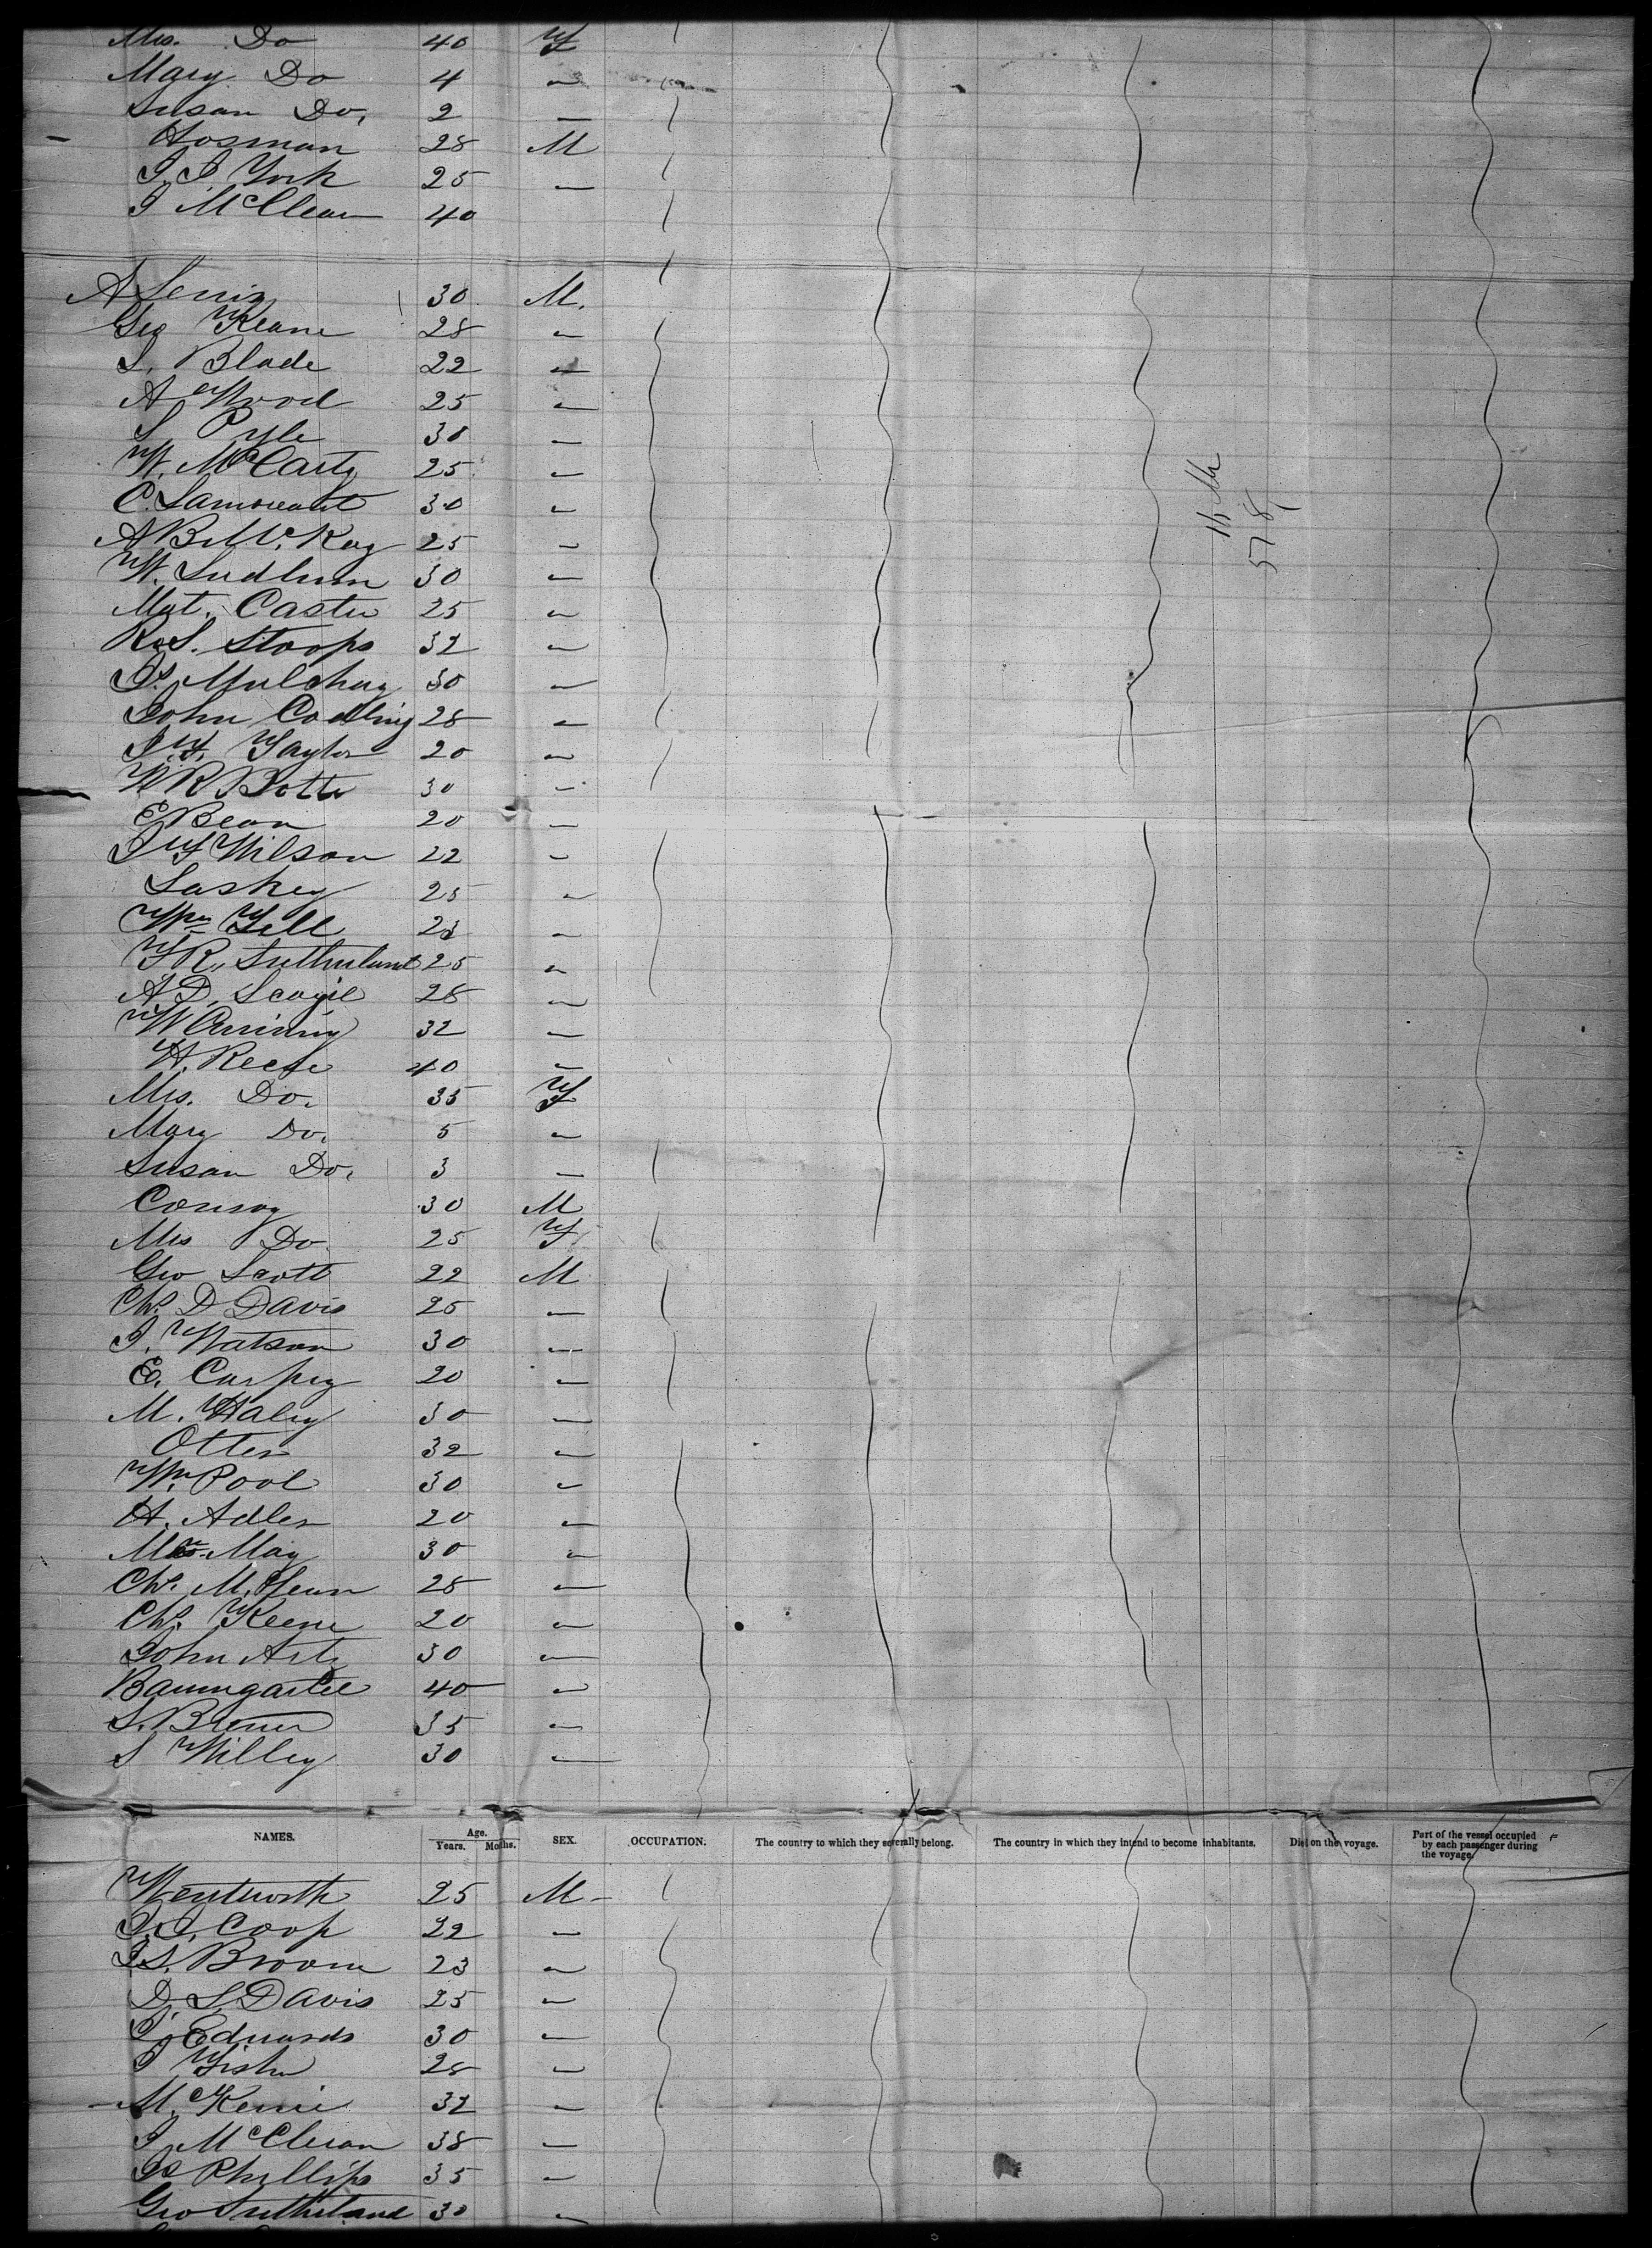 Mrs. Do 40 F
Mary Do 4 "
Susan Do, 2 "
Hosman 28 M
J. J York 25 "
J McClean 40
A 30 M.
Geo Keane 28 "
S. Blade 22 "
A Wood 25 "
S Pyle 30 "
W. McCarty 25 "
C. Lamoreaut 30 "
A B McKay 25 "
W. Ludlum 30 "
Mat. Caster 25 "
R. S. Stoops 32 "
Js. Mulchay 30 "
John Codling 28 "
J. F. Taylor 20 "
W R Botte 30 "
E Bean 20 "
J F Wilson 22 "
Laskey 25 "
Wm Tell 23 "
F R. Sutherland 25 "
A D. 28 "
W 32 "
H. Reese 40 "
Mrs. Do. 35 F
Mary Do. 5 "
Susan Do. 3 "
Conroy 30 M
Mrs Do. 25 F
Geo Scott 22 M
Chs. D Davis 25 "
J. Watson 30 "
E. 20 "
M. Haley 30 "
Otter 32 "
Wm Pool 30 "
H. Adler 20 "
May 30 "
Chs. 28 "
Chs. Keene 20 "
John Artz 30 "
Baumgartel 40 "
S. Brener 35 "
S Willey 30 "
578
NAMES. Age. Years. Moths. SEX. OCCUPATION. The country to which they severally belong. The country in which they intend to become inhabitants. Died on the voyage. Part of the vessel occupied by each passenger during the voyage.
Wentworth 25 M
J. J. Coop 22 "
J. S. Broom 23 "
D. S. Davis 25 "
J. Edwards 30 "
J Fisher 28 "
M. Kenie 32 "
J McClean 38 "
Js Phillips 35 "
Geo Sutherland 30 "